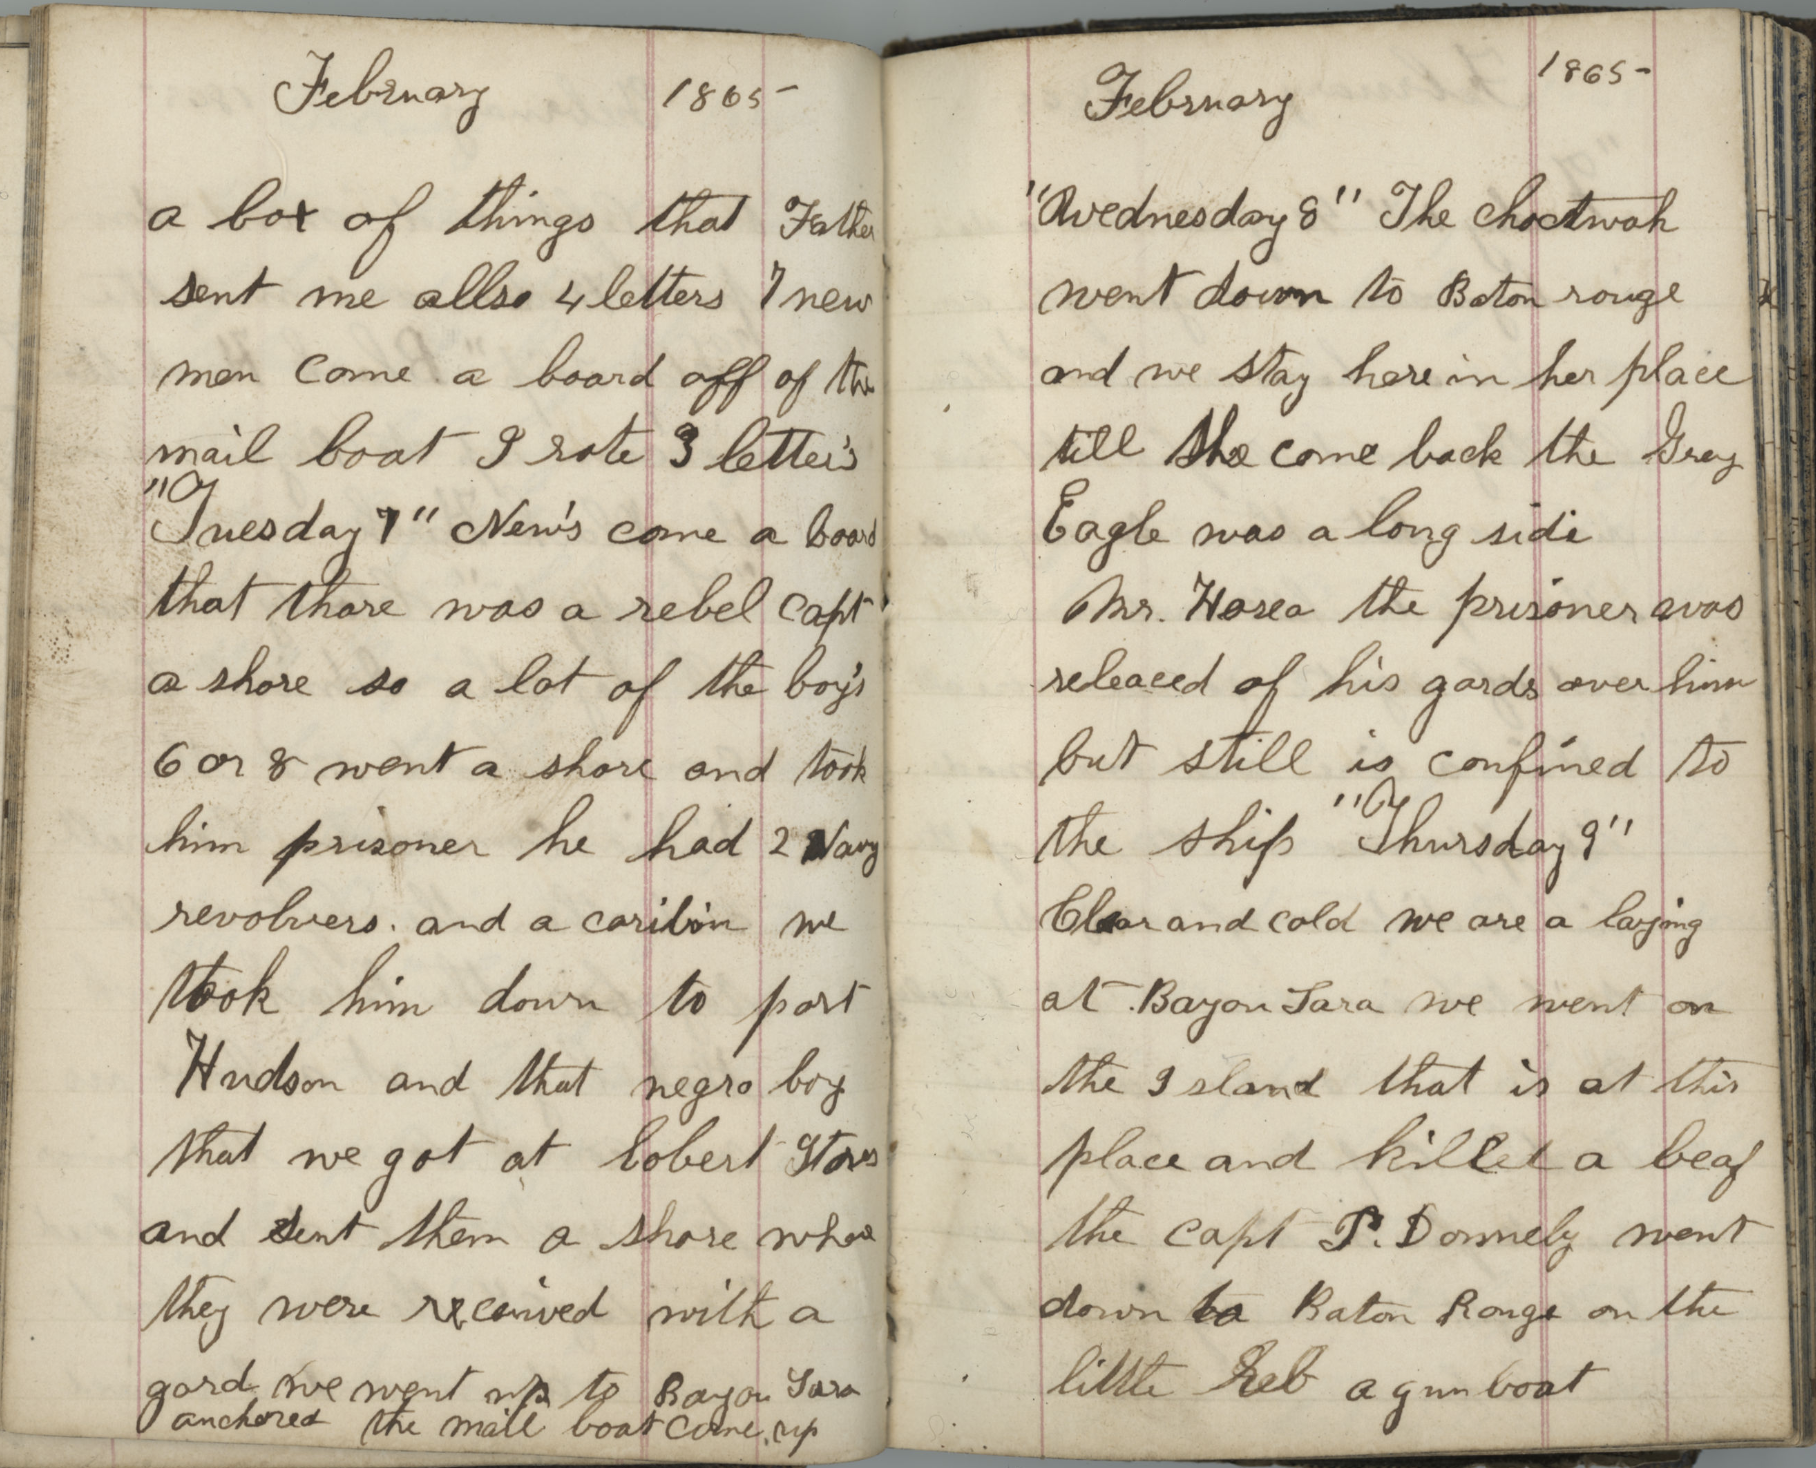 February 1865-
a box of things that Father
sent me allso 4 letters 7 new
men come a board off of the
mail boat I rote 3 letter's
"Tuesday 7" New's come a board
that thare was a rebel Capt
a shore so a lot of the boy's
6 or 8 went a shore and took
him prisoner he had 2 Navy
revolvers. and a caribin we
took him down to port
Hudson and that negro boy
that we got at lobert Stores
and sent them a shore whare
they were received with a
gard we went up to Bayou Sara
anchored the mail boat come up
February 1865-
"Wednesday 8" The Choctwah
went down to Baton rouge
and we stay here in her place
till she come back the Grey
Eagle was a long side
Mr. Hosea the prisoner was
releaced of his gards over him
but still is confined to
the ship "Thursday 9"
Clear and cold we are a laying
at Bayou Sara we went on
the Island that is at this
place and killed a beaf
the Capt P. Donnely went
down to Baton Rouge on the
little Reb a gun boat